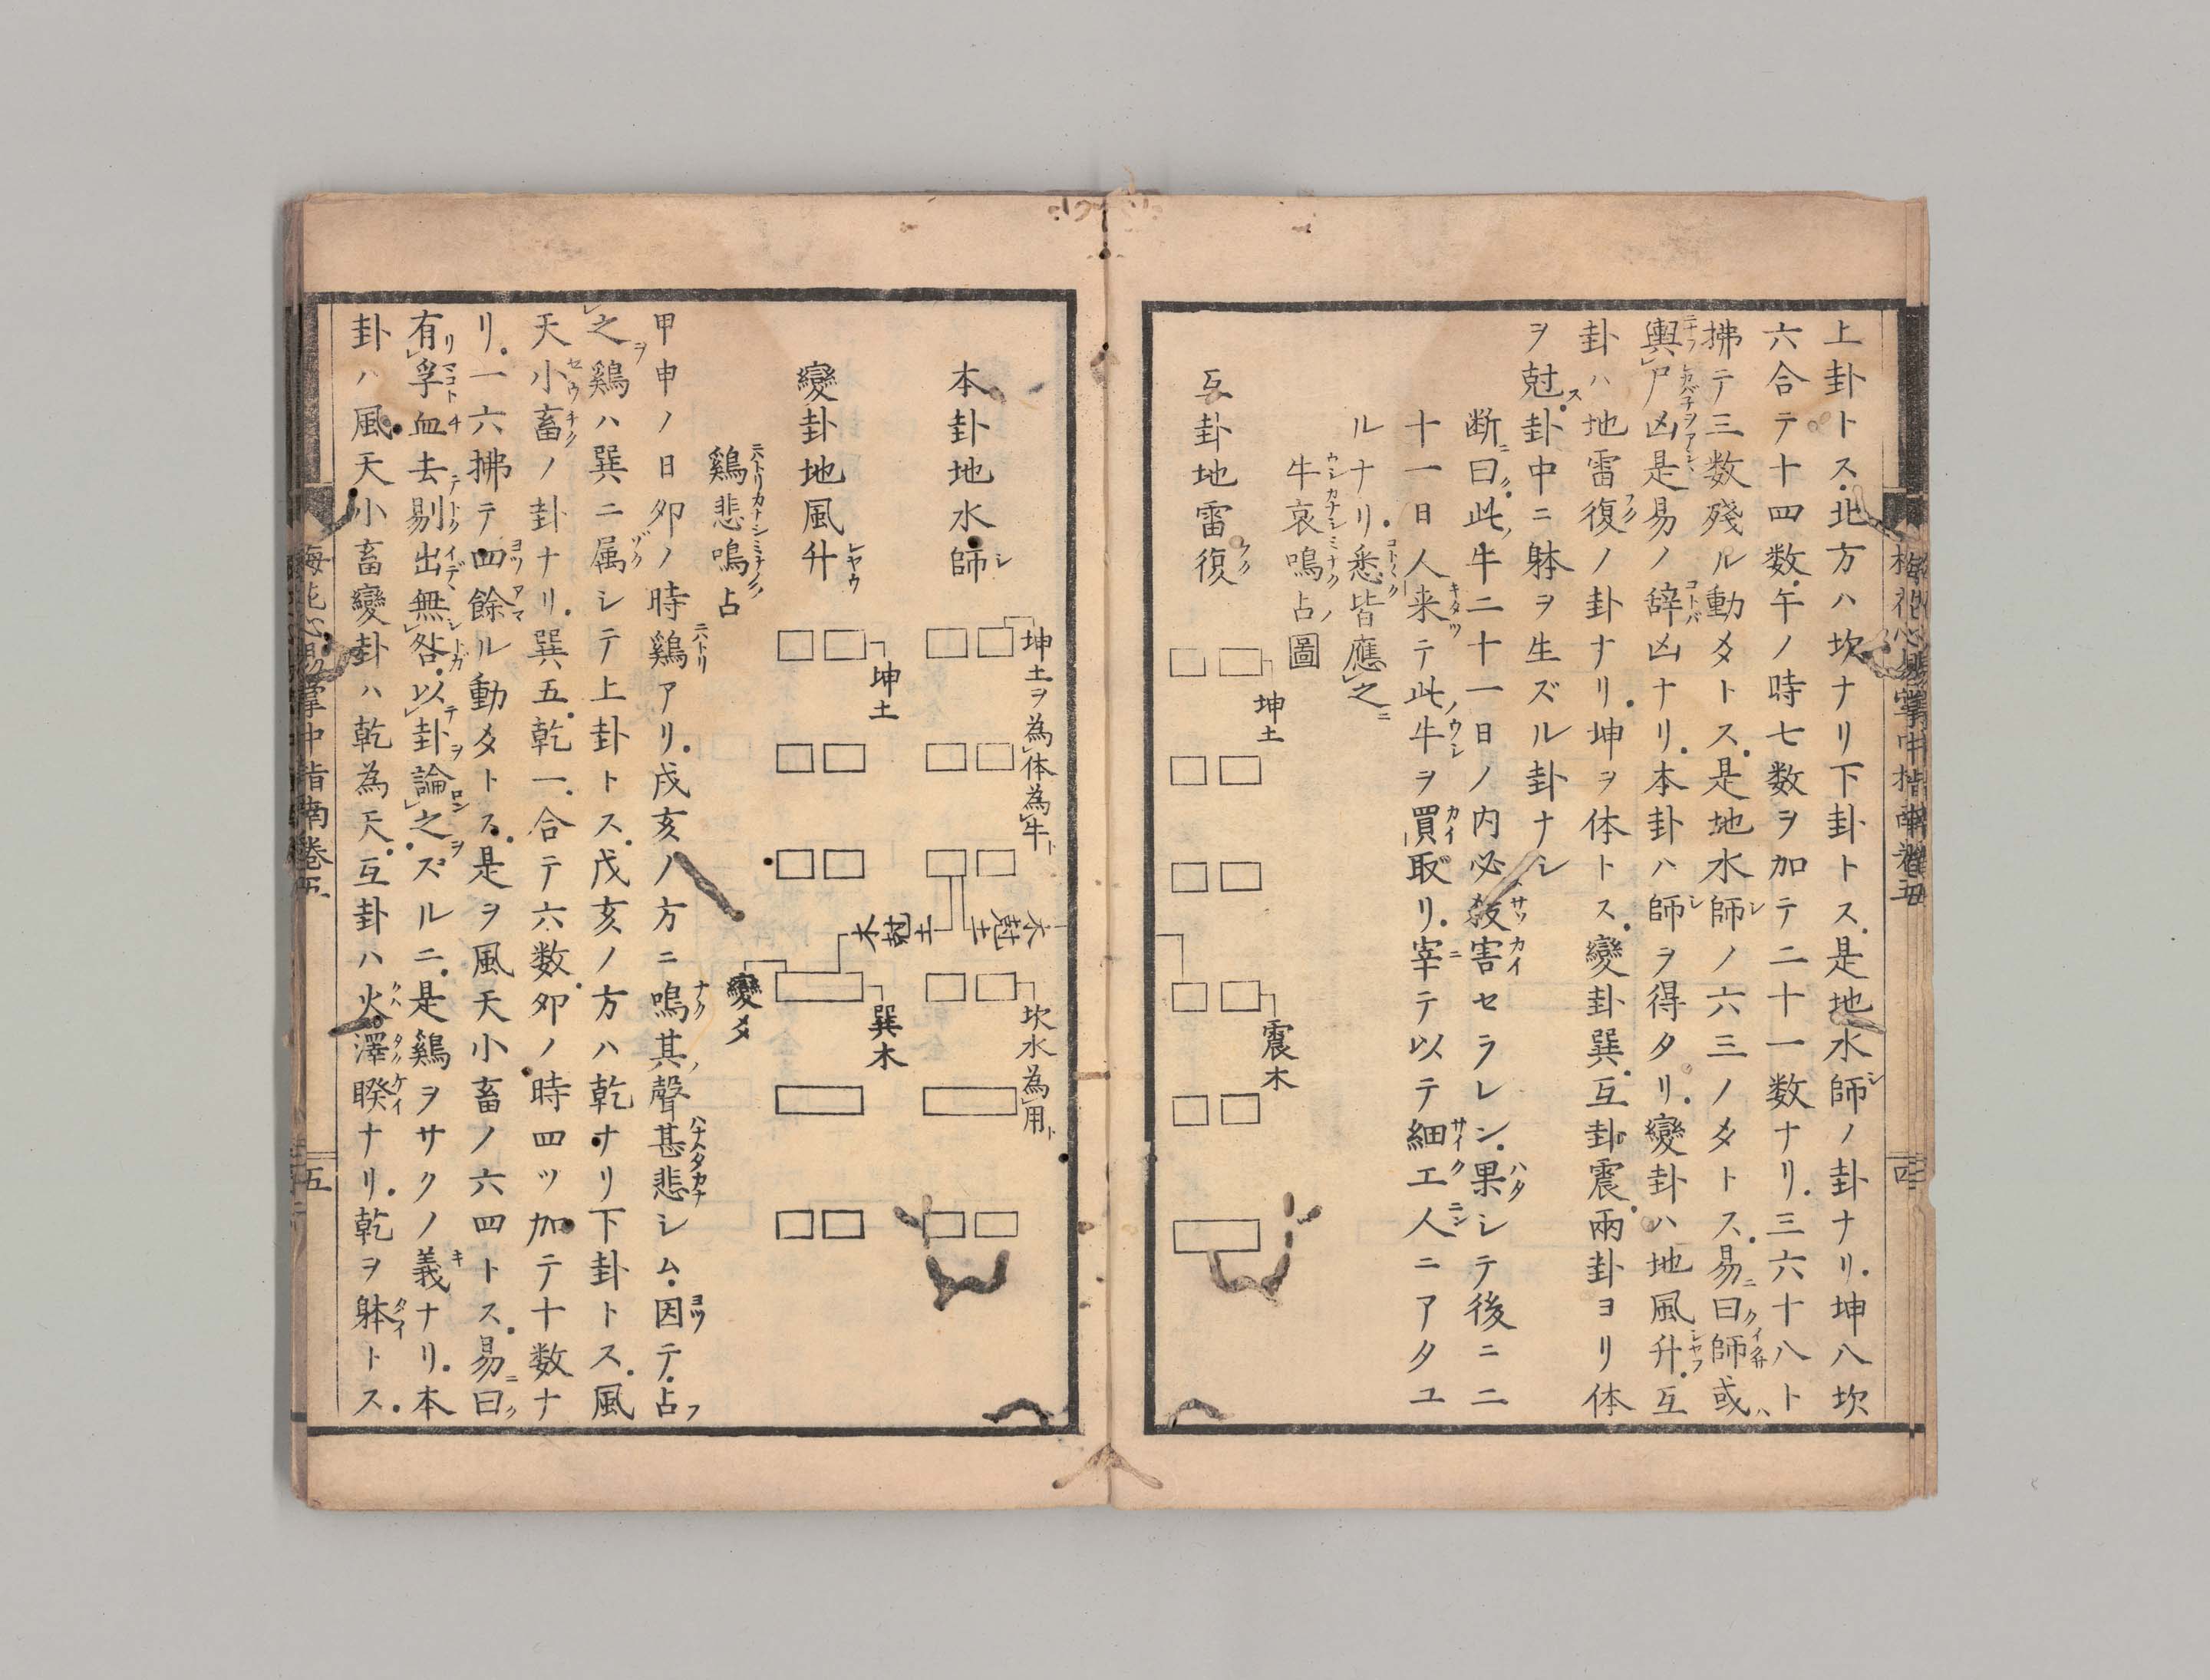 上卦トス北方ハ坎ナリ下卦トス是地水師ノ卦ナリ坤八坎
六合テ十四数午ノ時七数ヲ加テ二十一数ナリ三六十八ト
拂テ三数殘ル動爻トス是地水師ノ六三ノ爻トス易曰師或
輿尸凶是易ノ辞凶ナリ本卦ハ師ヲ得タリ變卦ハ地風升互
卦ハ地雷復ノ卦ナリ坤ヲ体トス變卦巽互卦震兩卦ヨリ体
ヲ尅ス卦中ニ躰ヲ生ズル卦ナシ
断曰此牛二十一日ノ内必殺害セラレン果シテ後ニ二
十一日人来テ此牛ヲ買取リ宰テ以テ細工人ニアタユ
ルナリ悉皆應之
牛哀鳴占圖
互卦地雷復
坤土
震木
梅花心易掌中指南卷五
四
本卦地水師
坤土ヲ為体為牛
坎水為用
木尅土
變卦地風升
坤土
木尅土
巽木
變爻
鷄悲鳴占
甲申ノ日卯ノ時鷄アリ戌亥ノ方ニ鳴其聲甚悲シム因テ占
之鷄ハ巽ニ属シテ上卦トス戌亥ノ方ハ乾ナリ下卦トス風
天小畜ノ卦ナリ巽五乾一合テ六数卯ノ時四ツ加テ十数ナ
リ一六拂テ四餘ル動爻トス是ヲ風天小畜ノ六四トス易曰
有孚血去剔出無咎以卦論之ズルニ是鷄ヲサクノ義ナリ本
卦ハ風天小畜變卦ハ乾為天互卦ハ火澤睽ナリ乾ヲ躰トス
梅花心易掌中指南卷五
五